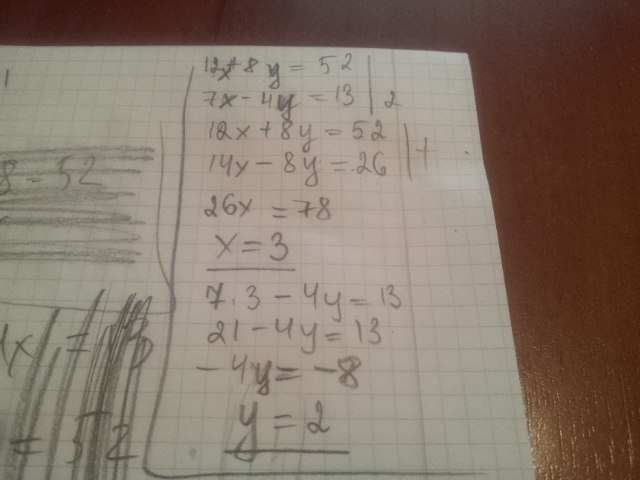 12x+8y=52
7x-4y=13 | 2
12x+8y=52
14x-8y=26 | +
26x=78
x=3
7.3-4y=13
21-4y=13
-4y=-8
y=2
8-52
= 52